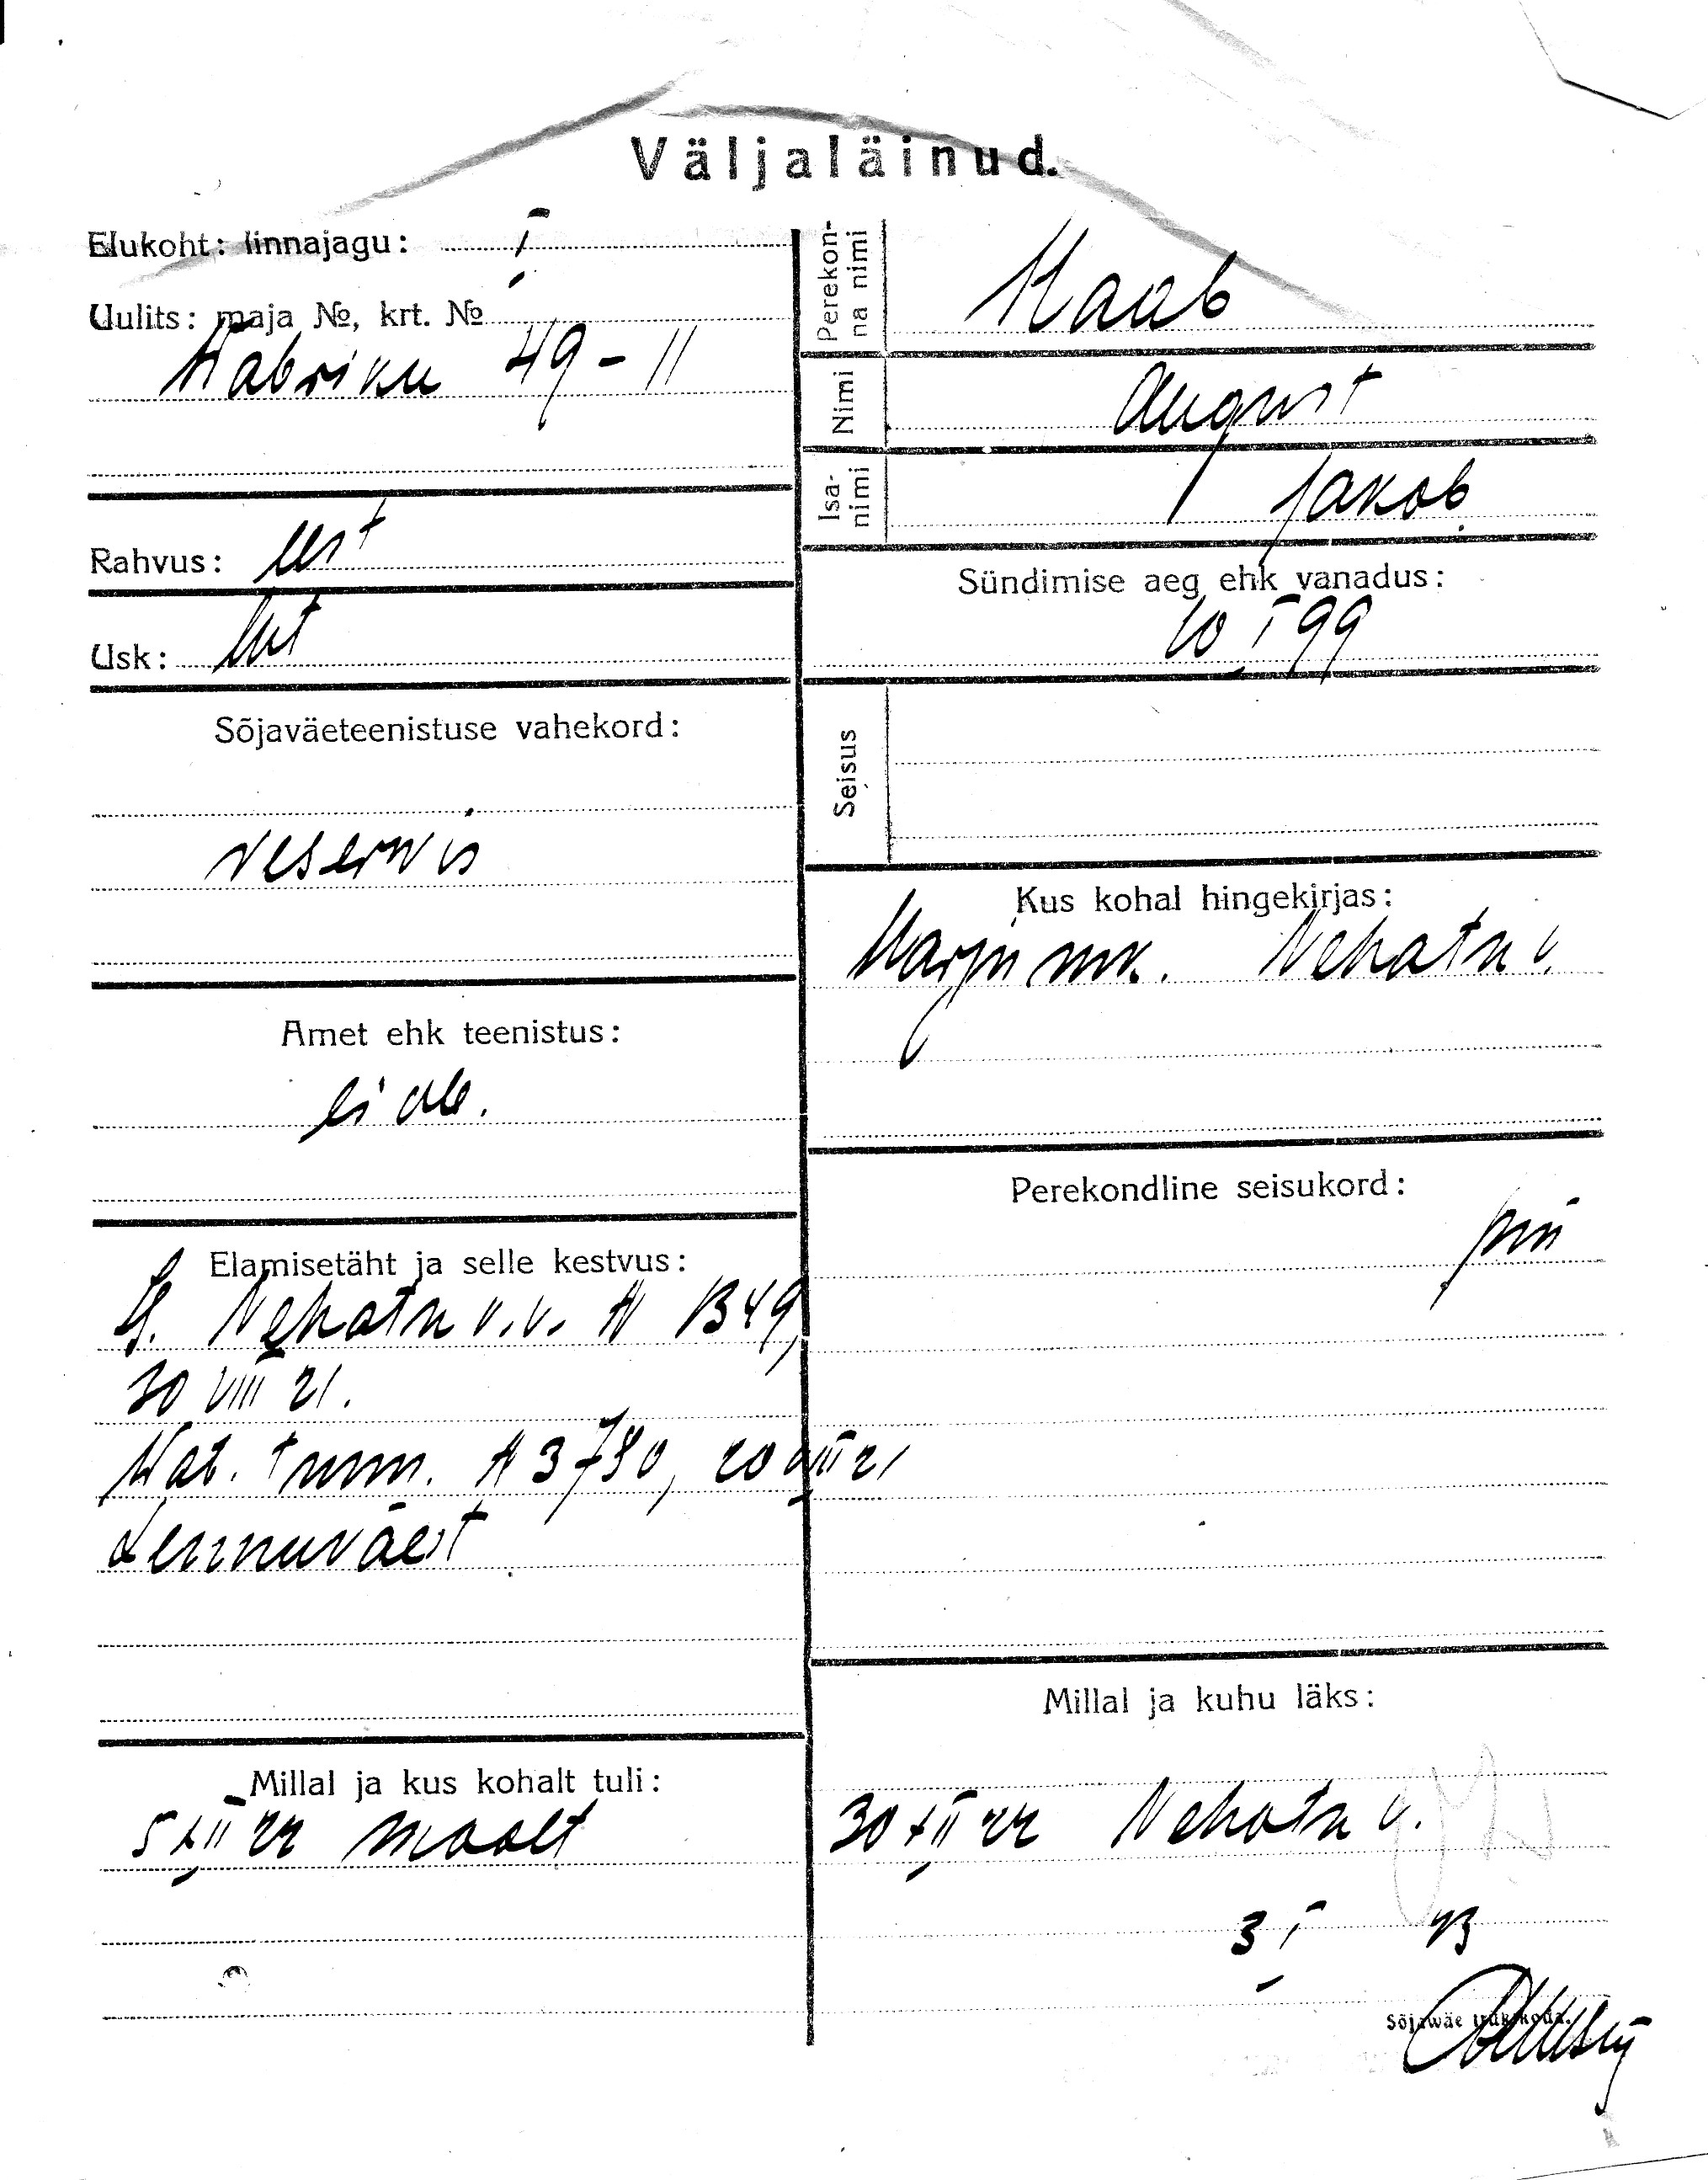 Väljaläinud.
Elukoht: linnajagu: I
Uulits: maja №, krt. №
Wabriku 49-11
Rahvus: est
Usk: lut
Sõjaväeteenistuse vahekord:
reservis
Amet ehk teenistus:
ei ole.
Elamisetäht ja selle kestvus:
Nehatu v.v. N 1349,
30 VIII 21.
N 3780, 20 VIII 21
Lennuväest
Millal ja kus kohalt tuli:
5 XII 22 maalt
Perekonna nimi
Nimi August
Isanimi Jakob
Sündimise aeg ehk vanadus:
10 I 99
Seisus
Kus kohal hingekirjas:
Harju mk. Nehatu v.
Perekondline seisukord:
Millal ja kuhu läks:
30 XII 22 Nehatu v.
3 I 23
Sõjawäe trükikoda.